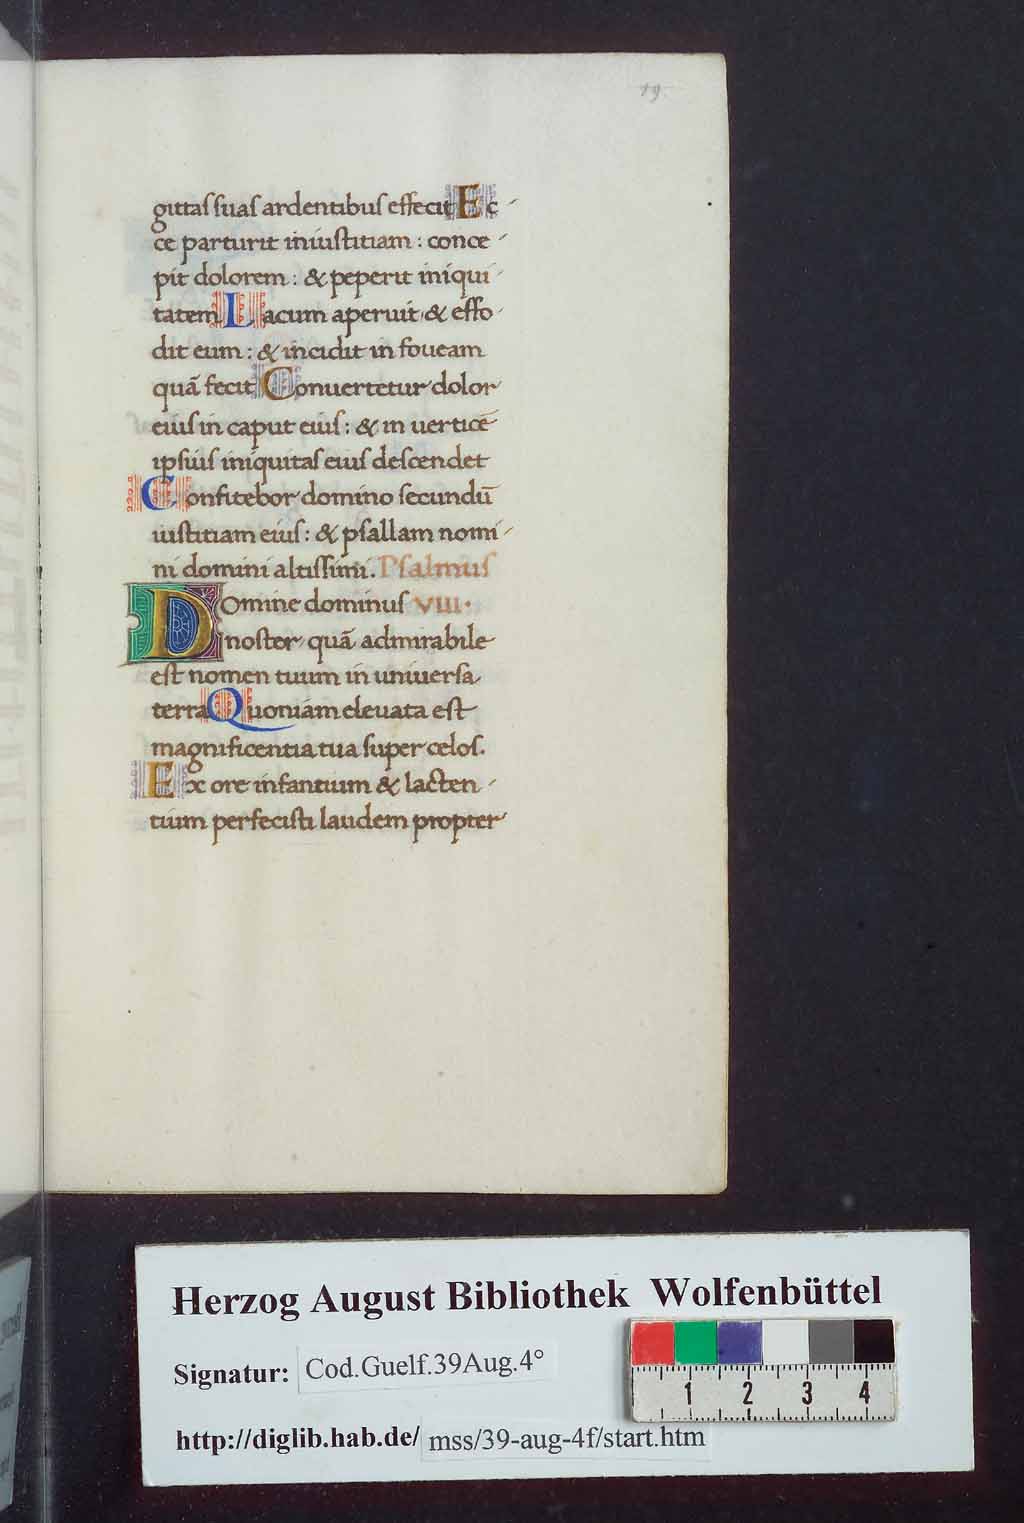 19.
gittas suas ardentibus effecit Ec-
ce parturit iniustitiam : conce-
pit dolorem : & peperit iniqui-
tatem Lacum aperuit & effo-
dit eum : & incidit in foueam
quā fecit Conuertetur dolor
eius in caput eius : & in uertice
ipsius iniquitas eius descendet
Confitebor domino secundū
iustitiam eius : & psallam nomi-
ni domini altissimi. Psalmus
Domine dominus VIII.
noster quā admirabile
est nomen tuum in uniuersa
terra Quoniam eleuata est
magnificentia tua super celos.
Ex ore infantium & lacten-
tium perfecisti laudem propter
Herzog August Bibliothek Wolfenbüttel
Signatur: Cod.Guelf.39Aug.4°
http://diglib.hab.de/ mss/39-aug-4f/start.htm
1 2 3 4